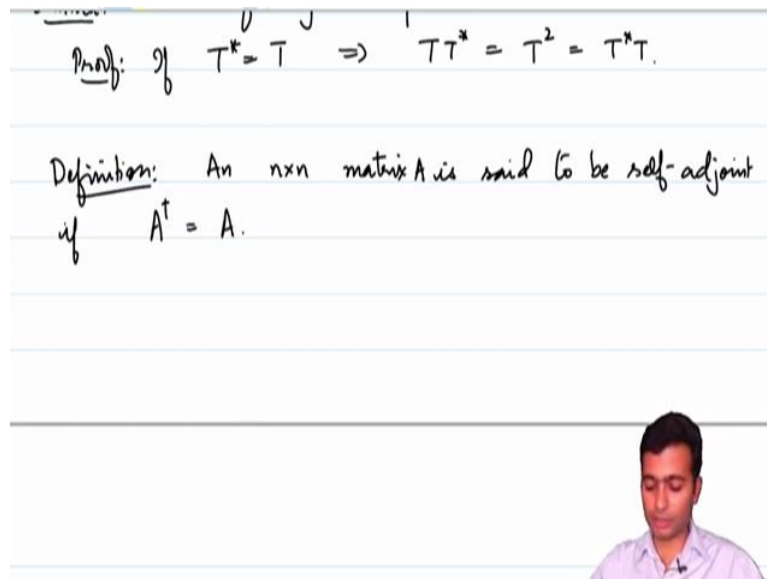 Proof: If T* = T ⇒ TT* = T² = T*T.
Definition: An n×n matrix A is said to be self-adjoint
if A† = A.